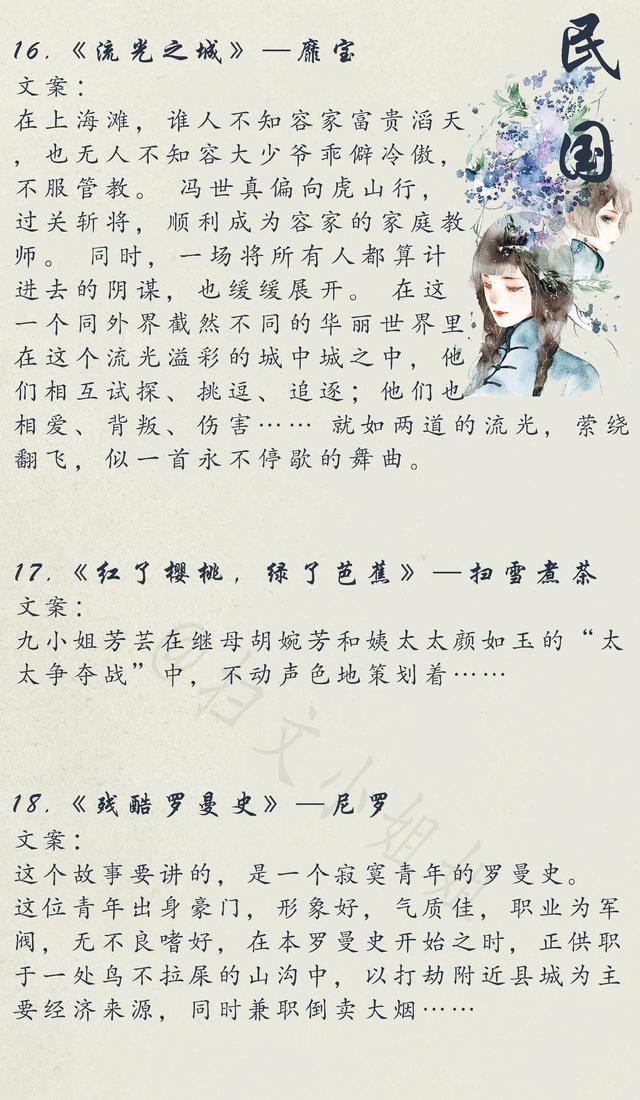 民国
16.《流光之城》—靡宝
文案：
在上海滩，谁人不知容家富贵滔天
，也无人不知容大少爷乖僻冷傲，
不服管教。 冯世真偏向虎山行，
过关斩将，顺利成为容家的家庭教
师。 同时，一场将所有人都算计
进去的阴谋，也缓缓展开。 在这
一个同外界截然不同的华丽世界里
在这个流光溢彩的城中城之中，他
们相互试探、挑逗、追逐；他们也
相爱、背叛、伤害…… 就如两道的流光，萦绕
翻飞，似一首永不停歇的舞曲。
17.《红了樱桃，绿了芭蕉》—扫雪煮茶
文案：
九小姐芳芸在继母胡婉芳和姨太太颜如玉的“太
太争夺战”中，不动声色地策划着……
@扫文小姐姐
18.《残酷罗曼史》—尼罗
文案：
这个故事要讲的，是一个寂寞青年的罗曼史。
这位青年出身豪门，形象好，气质佳，职业为军
阀，无不良嗜好，在本罗曼史开始之时，正供职
于一处鸟不拉屎的山沟中，以打劫附近县城为主
要经济来源，同时兼职倒卖大烟……